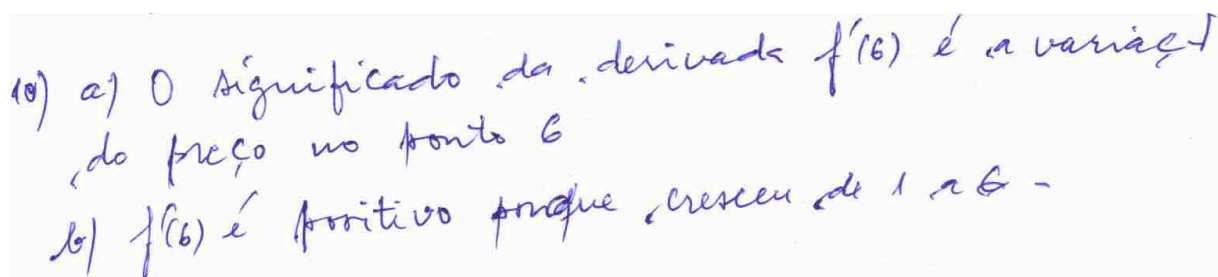 10) a) O significado da derivada f'(6) é a variaçã
do preço no ponto 6
b) f'(6) é positivo porque cresceu de 1 a 6 -